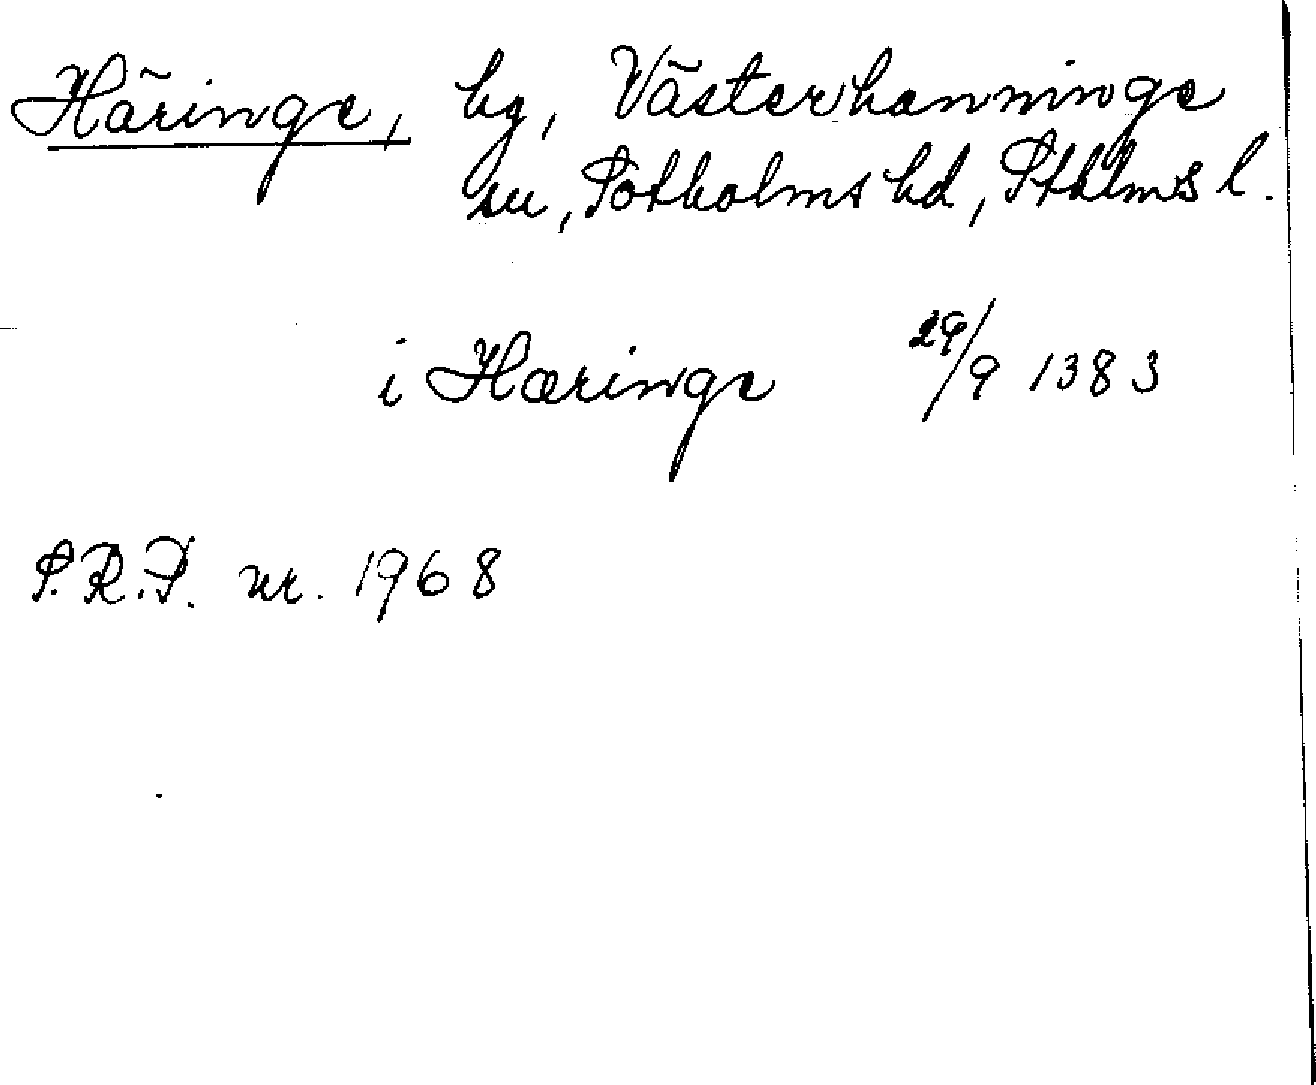 Häringe, hg, Västerhanninge
sn, Sotholms hd, Sthlms l.
i Hæringe 29/9 1383
S.R.P. nr. 1968